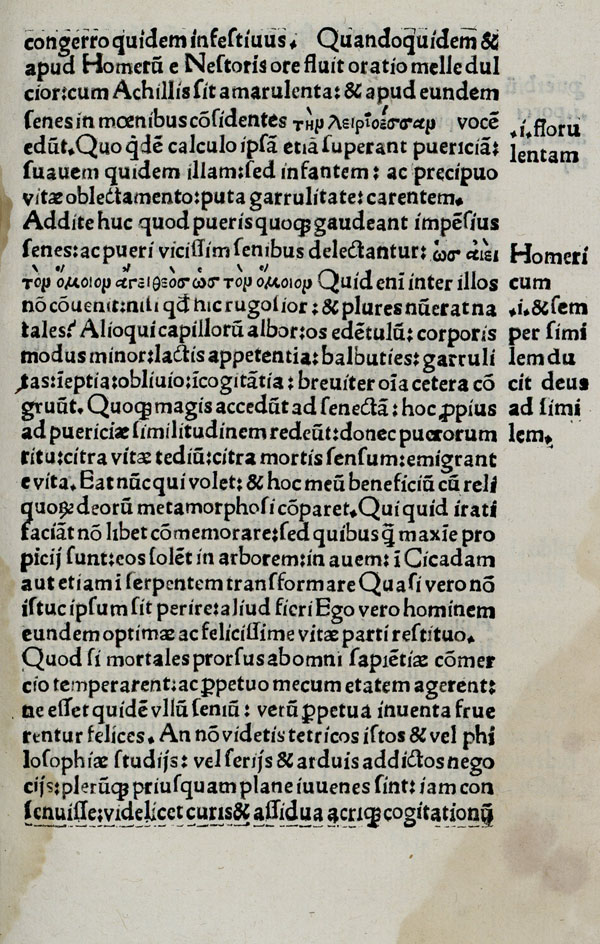 congerro quidem infestiuus. Quandoquidem &
apud Homerū e Nestoris ore fluit oratio melle dul
cior: cum Achillis sit amarulenta: & apud eundem
senes in mœnibus cōsidentes τὴν λειριόεσσαν vocē
edūt. Quo qdē calculo ipsā etiā superant puericiā:
suauem quidem illam: sed infantem: ac precipuo
vitæ oblectamento: puta garrulitate: carentem.
Addite huc quod pueris quoqꝫ gaudeant impēsius
senes: ac pueri vicissim senibus delectantur: ὡσ αἰεὶ
τὸν ὅμοιον ἄγει θεὸσ ὡσ τὸν ὅμοιον Quid enī inter illos
nō cōuenit: nisi qd hic rugosior: & plures nūerat na
tales? Alioqui capillorū albor: os edētulū: corporis
modus minor: lactis appetentia: balbuties: garruli
tas: īeptia: obliuio: īcogitātia: breuiter oīa cetera cō
gruūt. Quoqꝫ magis accedūt ad senectā: hoc ꝓpius
ad puericiæ similitudinem redeūt: donec puerorum
ritu: citra vitæ tediū: citra mortis sensum: emigrant
e vita. Eat nūc qui volet: & hoc meū beneficiū cū reli
quoꝝ deorū metamorphosi cōparet. Qui quid irati
faciāt nō libet cōmemorare: sed quibus q̄ maxīe pro
picij sunt: eos solēt in arborem: in auem: ī Cicadam
aut etiam i serpentem transformare Quasi vero nō
istuc ipsum sit perire: aliud fieri Ego vero hominem
eundem optimæ ac felicissime vitæ parti restituo.
Quod si mortales prorsus ab omni sapiētiæ cōmer
cio temperarent: ac ꝓpetuo mecum etatem agerent:
ne esset quidē vllū seniū: verū ꝓpetua iuuenta frue
rentur felices. An nō videtis tetricos istos & vel phi
losophiæ studijs: vel serijs & arduis addictos nego
cijs: plerūqꝫ priusquam plane iuuenes sint: iam con
senuisse: videlicet curis & assidua acriqꝫ cogitationū
.i. floru
lentam
Homeri
cum
.i. & sem
per simi
lem du
cit deus
ad simi
lem.